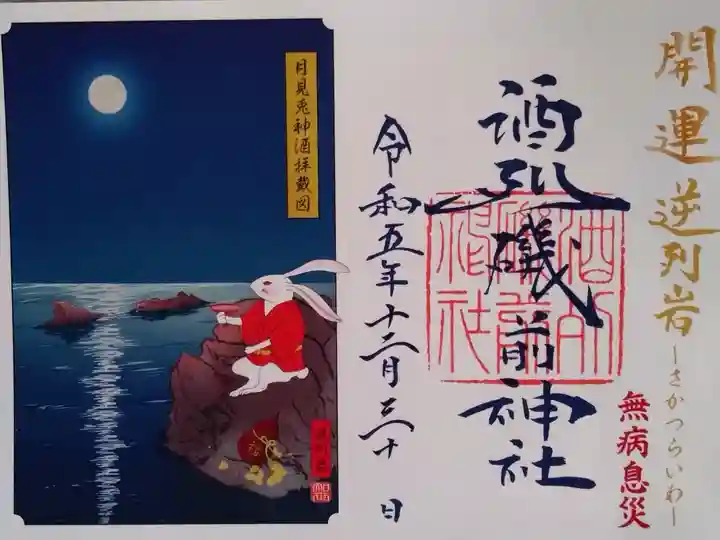 開運逆列岩
ーさかつらいわー
無病息災
酒列磯前神社
令和五年十二月三十日
月見兎神酒拝戴図